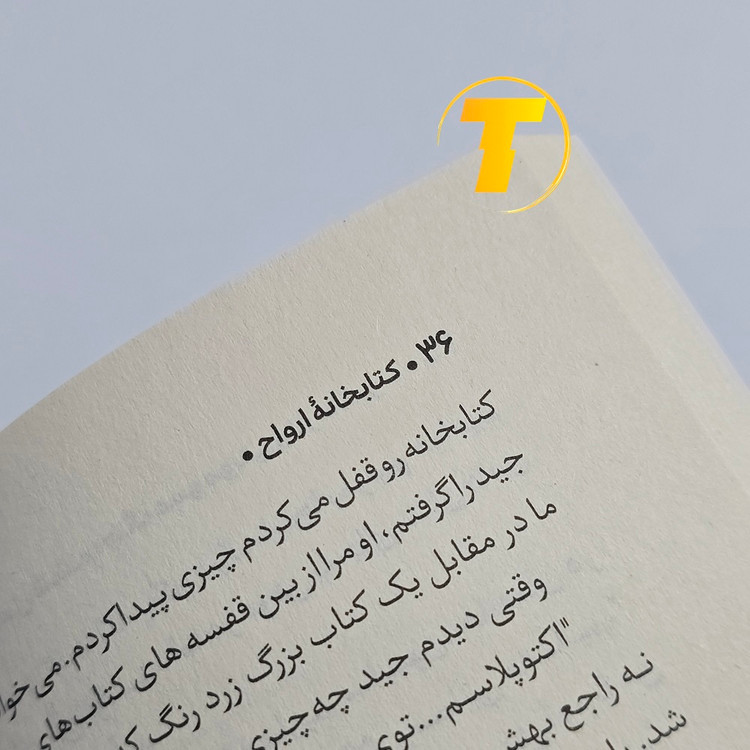 T
۳۶ • کتابخانهٔ ارواح •
کتابخانه رو قفل می‌کردم چیزی پیدا کردم. می
جید را گرفتم، او مرا از بین قفسه های کتاب‌های
ما در مقابل یک کتاب بزرگ زرد رنگ
وقتی دیدم جید چه چیزی
"اکتوپلاسم... توی
نه راجع
شد.